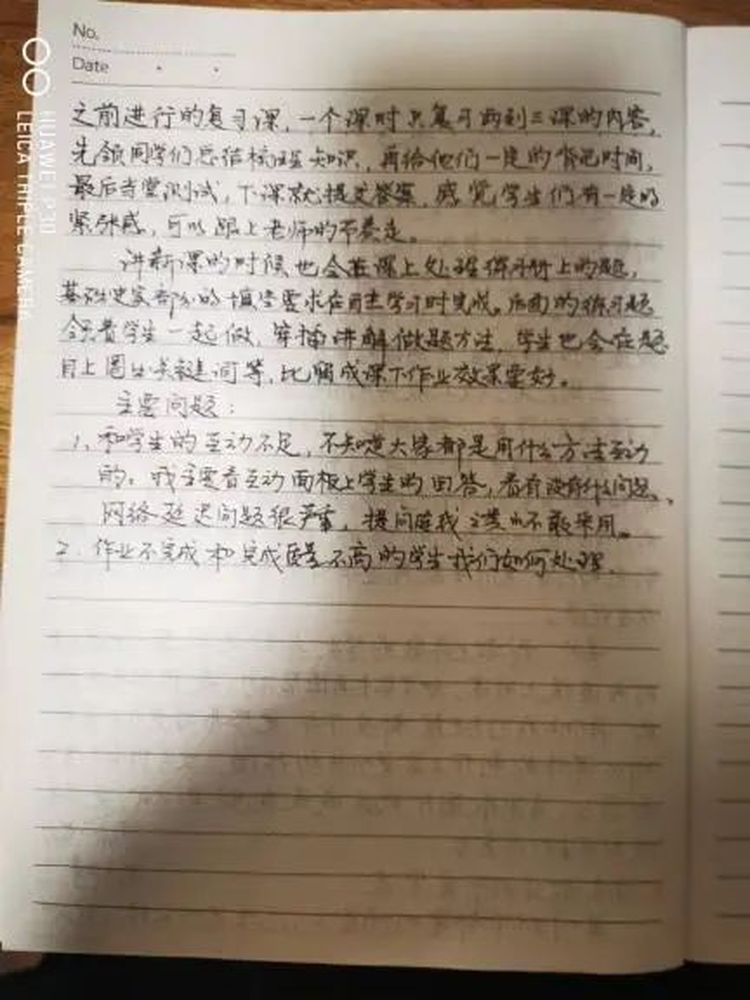 No.
Date
之前进行的复习课，一个课时只复习两到三课的内容，
先领同学们总结梳理知识，再给他们一定的背记时间，
最后当堂测试，下课就提交答案，感觉学生们有一定的
紧张感，可以跟上老师的节奏走。
讲新课的时候也会在课上处理练习册上的题，
基础史实部分的填空要求在自主学习时完成。后面的练习题
领着学生一起做，穿插讲解做题方法，学生也会在题
目上圈出关键词等，比留成课下作业效果要好。
主要问题：
1、和学生的互动不足，不知道大家都是用什么方法互动
的。我主要看互动面板上学生的回答，看有没有什么问题、
网络延迟问题很严重，提问连我都不敢采用。
2. 作业不完成和完成质量不高的学生我们如何处理.
HUAWEI P30
LEICA TRIPLE CAMERA